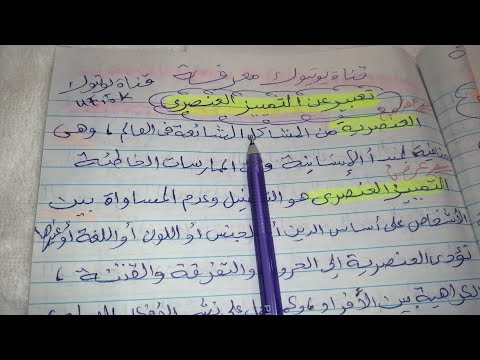 قناة يوتيوك معرفة قناة يوتيوك
تعبير عن التمييز العنصرى
العنصرية من المشاكل الشائعة فى العالم، وهى
منافية لمبدأ الإنسانية الممارسات الخاطئة
التمييز العنصرى هو التفضيل وعدم المساواة بين
الأشخاص على أساس الدين أو الجنس أو اللون أو اللغة أو غيرها
تؤدى العنصرية إلى الحروب والتفرقة والفتنة،
الكراهية بين الأفراد على نشر